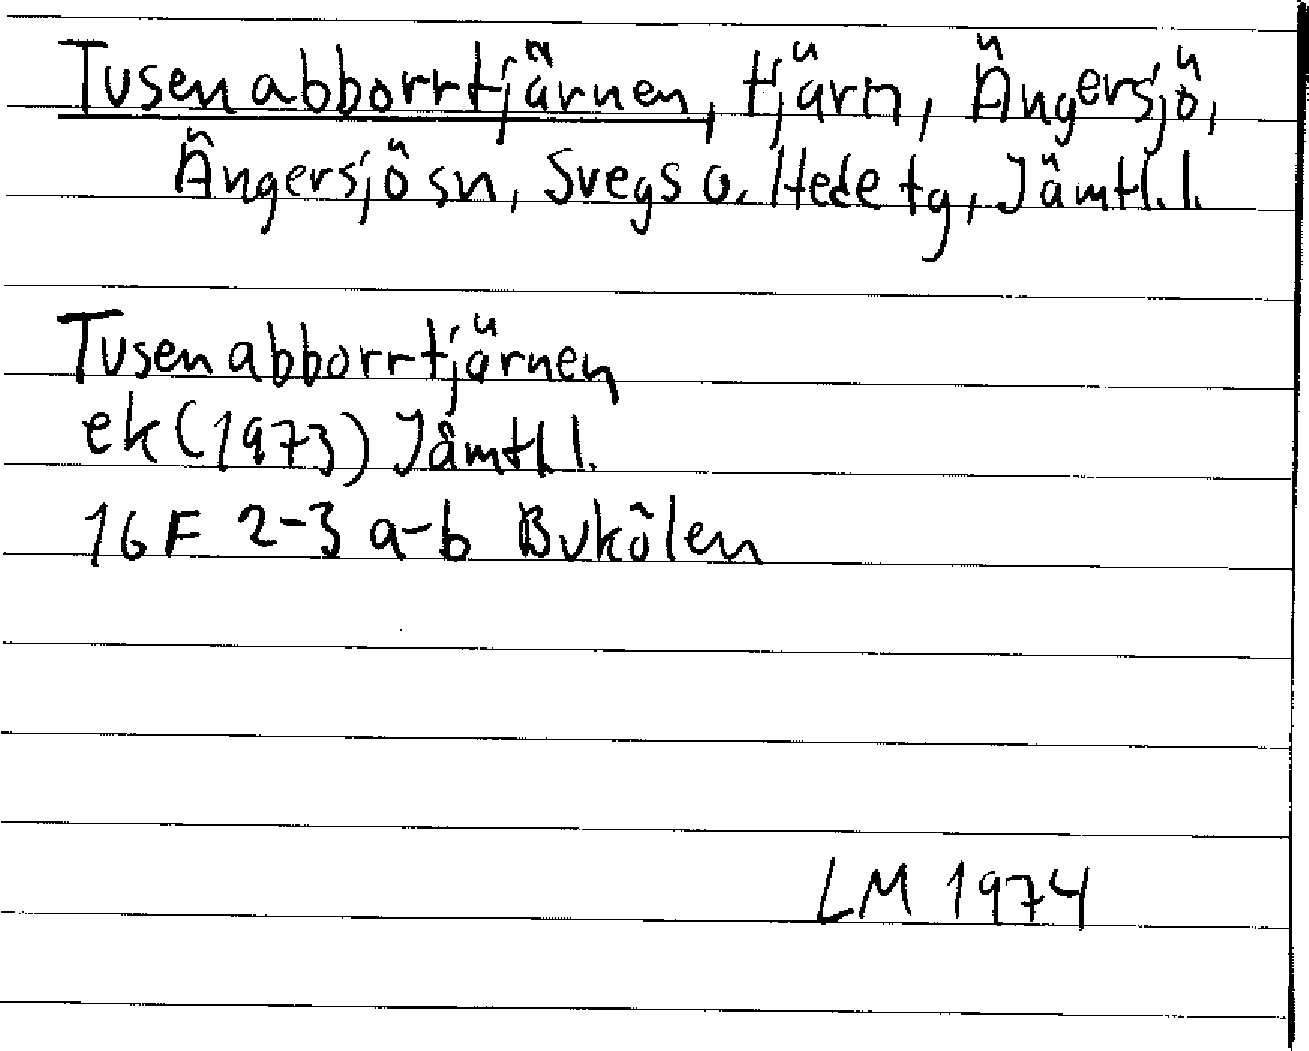 Tusenabborrtjärnen, tjärn, Ängersjö,
Ängersjö sn, Svegs o. Hede tg, Jämtl. l.
Tusenabborrtjärnen
ek (1973) Jämtl. l.
16 F 2-3 a-b Bukölen
LM 1974